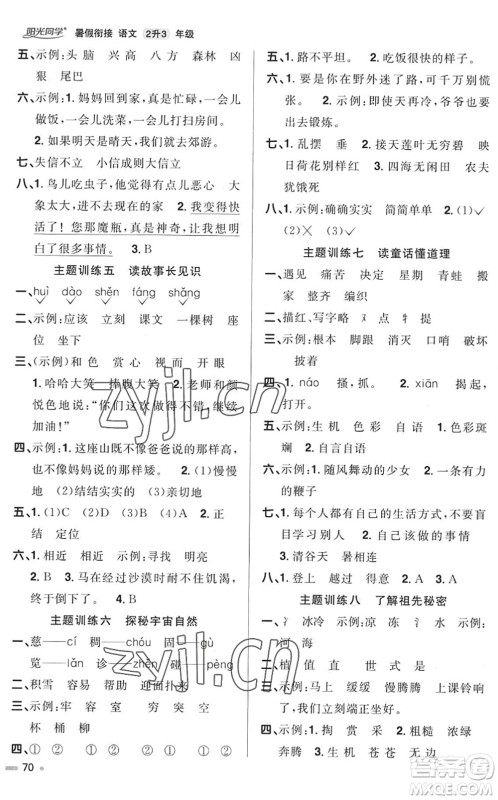 阳光同学 暑假衔接 语文 2升3 年级
五、示例:头脑 兴高 八方 森林 凶
狠 尾巴
六、示例:1.妈妈回到家,真是忙碌,一会儿
做饭,一会儿洗衣服,一会儿打扫房间。
2.如果明天是晴天,我们就去郊游。
七、失信不立 小信成则大信立
八、1.鸟儿吃虫子,他们可真是恶心 大
象太大,进不去我的家 2.我变得快
活了!您那魔瓶,真是神奇,让我明白
了很多事情。 3.B
主题训练五 读故事长见识
一、huì dào shěn fáng shǎng
二、示例:应该 立刻 课文 一棵树 座
位 坐下
三、(示例:)和 色 赏 心 视 开 眼
1.哈哈大笑 捧腹大笑 2.老师和颜
悦色地说:“你们这次做得不错,继续
加油!”
四、示例:1.这座山既不像爸爸说的那样高,
也不像妈妈说的那样矮。 2.(1)慢慢
地 (2)结结实实的 (3)亲切地
五、1.(1)C (2)D (3)A (4)B 2.正
在 结结
六、1.相近 相近 示例:寻找 明亮
3.B 4.我在经过沙漠时已经喝光
了,终于得救了。
主题训练六 探秘宇宙自然
一、慈——cí 稠——chóu 固——gù
览——lǎn 诊——zhěn 碰——pèng
二、积雪 容易 帮助 迎面扑来
三、示例:牢 容 室 穷 突 空
杯 桶 柳
四、① ① ② ① ② ②
70
五、示例:1.越是 越能 2.可是 还是
六、示例:1.看着眼前的野外迷了路,可
千万别慌张。 2.即使天再冷,爷爷也要
出去锻炼。
七、1.乱摆 垂 立 2.接天莲叶无穷碧
映日荷花别样红 3.四海无闲田 农夫
犹饿死
八、1.示例:确确实实 简简单单 2.(1)✓
(2)× (3)✓
主题训练七 读童话懂道理
一、遇见 痛苦 决定 星期 青蛙 搬
家 整整 编织
二、描红、写字略 丿 点 牜 提
三、示例:根本 脚跟 摘果子 口哨 破坏
披着
四、1.náo 搔,抓。 2.xiān 揭,
打开。
五、1.示例:生机 色彩 2.示例:色彩斑
斓 3.自言自语
六、示例:1.随风舞动的少女 2.一条有力
的鞭子
七、1.每个人都有自己的生活方式,不要盲目
学习别人 2.自己该做的事情
3.清谷天 暑相连
八、1.登上 越过 进 得意 2.B
主题训练八 了解祖先秘密
一、冫 冰冷 示例:灬 点 然 氵
河 海
二、植 值 直 世 式 是
三、示例:马上 缓缓 慢腾腾 上课铃响了,
我们立刻端正坐好。
四、示例:1.顶 承 2.粗糙 浓绿
奔腾 3.生机 苍苍 无边